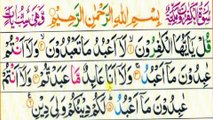 بِسْمِ اللهِ الرَّحْمٰنِ الرَّحِيْمِ
قُلْ يٰٓاَيُّهَا الْكٰفِرُوْنَ لَآ اَعْبُدُ مَا تَعْبُدُوْنَ وَلَآ اَنْتُمْ
عٰبِدُوْنَ مَآ اَعْبُدُ وَلَآ اَنَا عَابِدٌ مَّا عَبَدْتُّمْ وَلَآ اَنْتُمْ
عٰبِدُوْنَ مَآ اَعْبُدُ لَكُمْ دِيْنُكُمْ وَلِيَ دِيْنِ